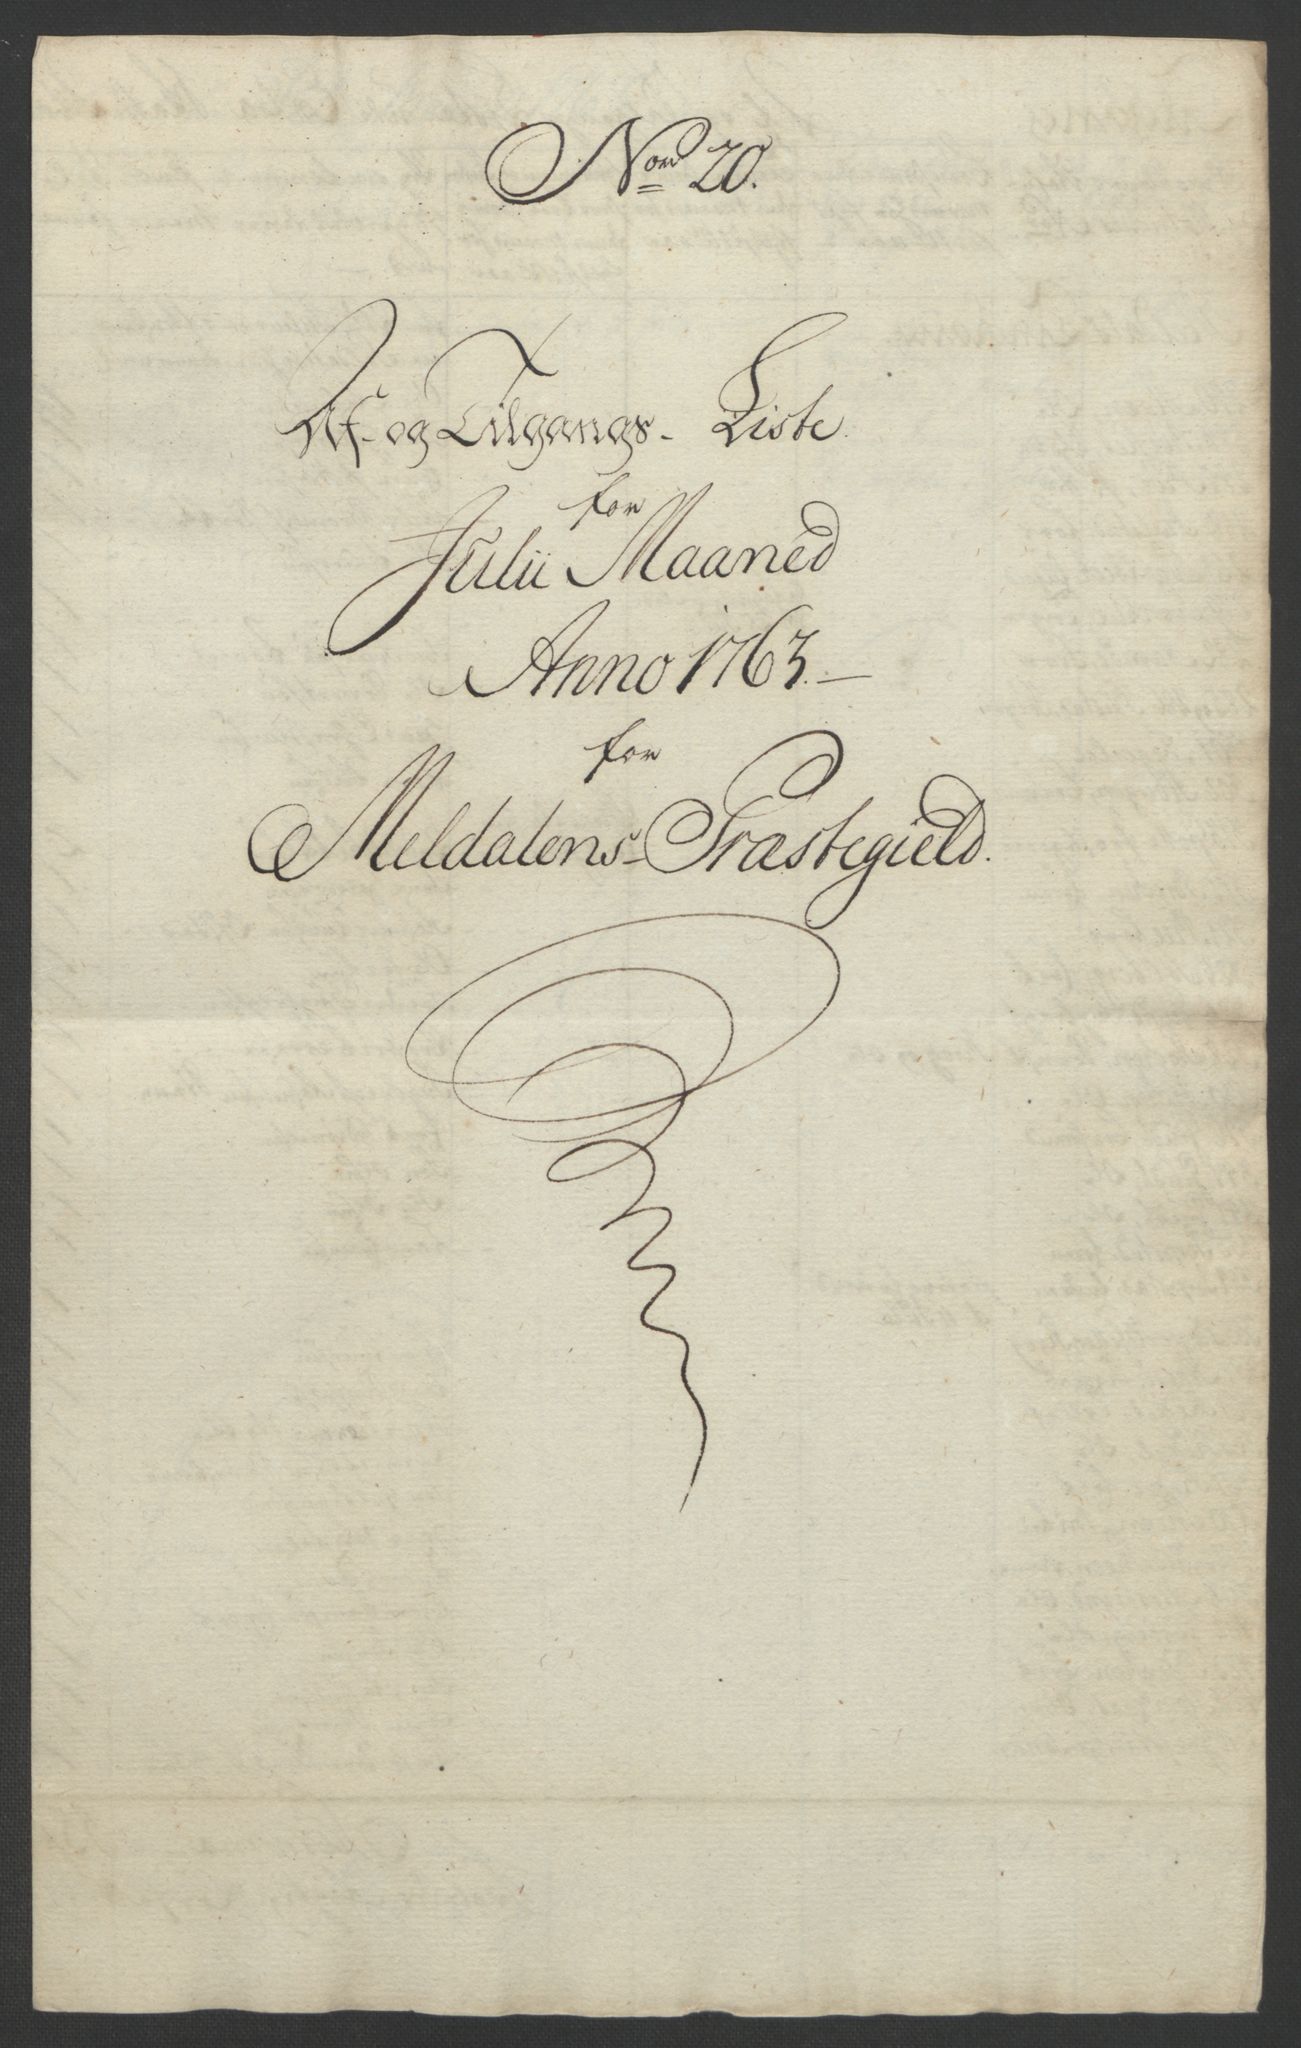 No̲r̲ 20.
Af- og Tilgangs- Liste
for
Julii Maaned
Anno 1763. —
for
Meldalens- Præstegield.